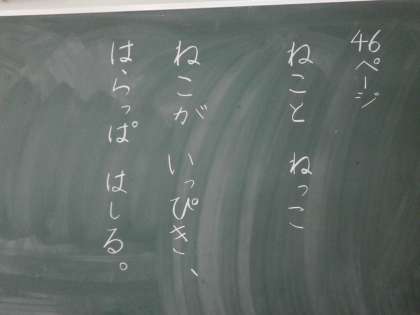 46ページ
ねこと ねっこ
ねこが いっぴき、
はらっぱ はしる。